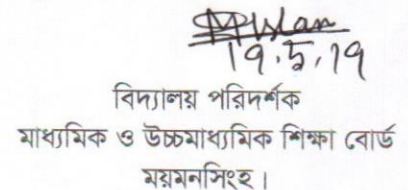 19.5.19
বিদ্যালয় পরিদর্শক
মাধ্যমিক ও উচ্চমাধ্যমিক শিক্ষা বোর্ড
ময়মনসিংহ।